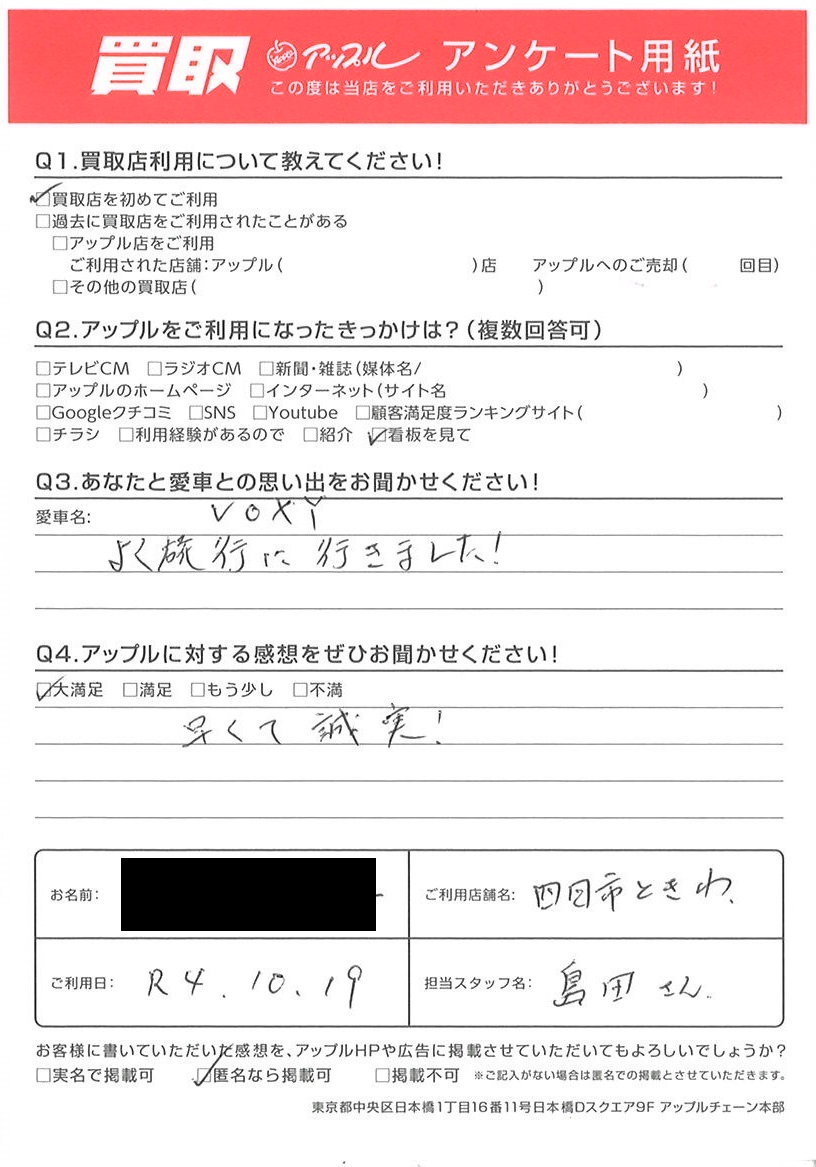 買取 アップル アンケート用紙
この度は当店をご利用いただきありがとうございます!
Q1.買取店利用について教えてください!
□買取店を初めてご利用
□過去に買取店をご利用されたことがある
□アップル店をご利用
ご利用された店舗:アップル( )店 アップルへのご売却( 回目)
□その他の買取店( )
Q2.アップルをご利用になったきっかけは?(複数回答可)
□テレビCM □ラジオCM □新聞・雑誌(媒体名/ )
□アップルのホームページ □インターネット(サイト名 )
□Googleクチコミ □SNS □Youtube □顧客満足度ランキングサイト( )
□チラシ □利用経験があるので □紹介 □看板を見て
Q3.あなたと愛車との思い出をお聞かせください!
愛車名: VOXY
よく旅行に行きました!
Q4.アップルに対する感想をぜひお聞かせください!
□大満足 □満足 □もう少し □不満
早くて誠実!
お名前: ご利用店舗名: 四日市ときわ.
ご利用日: R4.10.19 担当スタッフ名: 島田さん.
お客様に書いていただいた感想を、アップルHPや広告に掲載させていただいてもよろしいでしょうか?
□実名で掲載可 □匿名なら掲載可 □掲載不可 ※ご記入がない場合は匿名での掲載とさせていただきます。
東京都中央区日本橋1丁目16番11号日本橋Dスクエア9F アップルチェーン本部